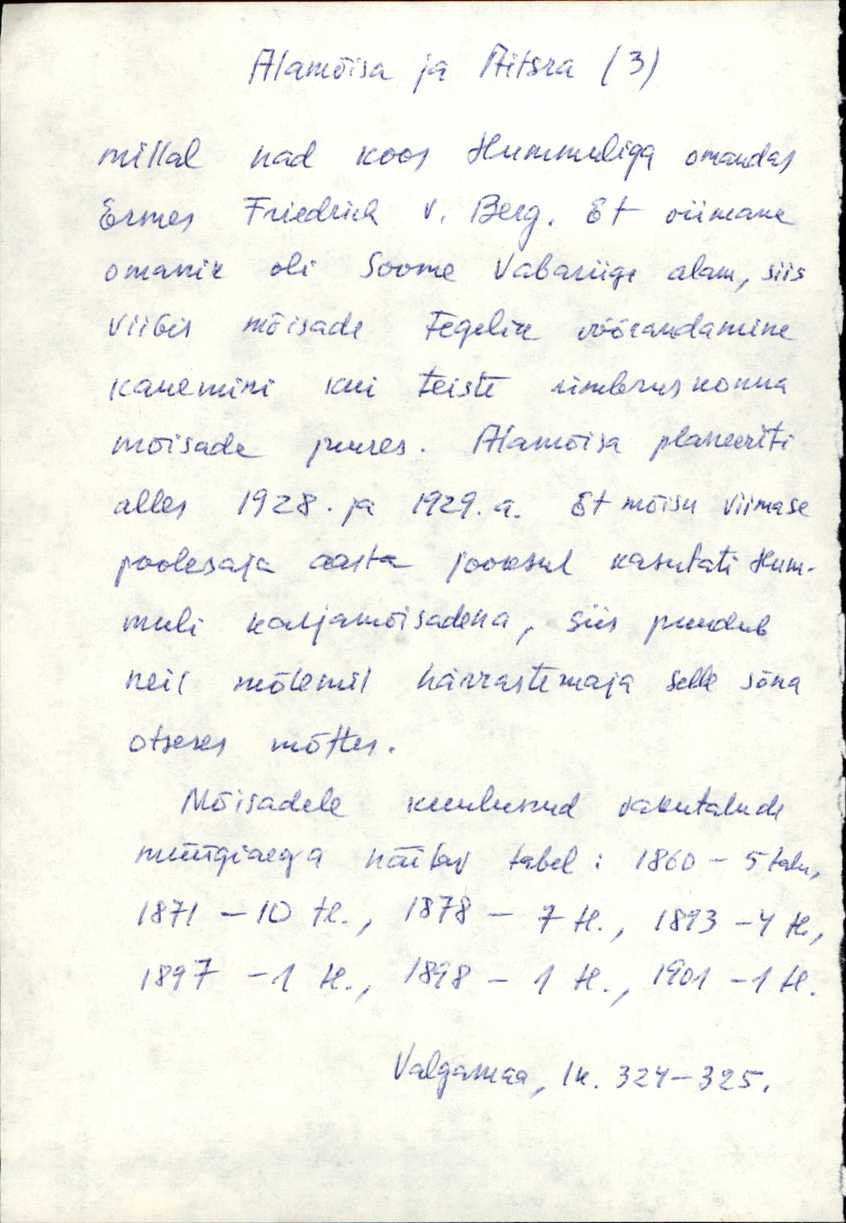 Alamõisa ja Aitsra (3)
millal nad koos Hummuliga omandas
Ermes Friedrich v. Berg. Et viimane
omanik oli Soome Vabariigi alam, siis
viibis mõisade tegelik võõrandamine
kauemini kui teiste ümbruskonna
mõisade juures. Alamõisa planeeriti
alles 1928. ja 1929. a. Et mõisu viimase
poolesaja aasta jooksul kasutati Hum-
muli karjamõisadena, siis puudub
neil mõlemil härrastemaja selle sõna
otseses mõttes.
Mõisadele kuulusnud vakutalude
müügiaega näitav tabel: 1860 - 5 talu,
1871 - 10 tl., 1878 - 7 tl., 1893 - 4 tl.,
1897 - 1 tl., 1898 - 1 tl., 1901 - 1 tl.
Valgamaa, lk. 324-325.